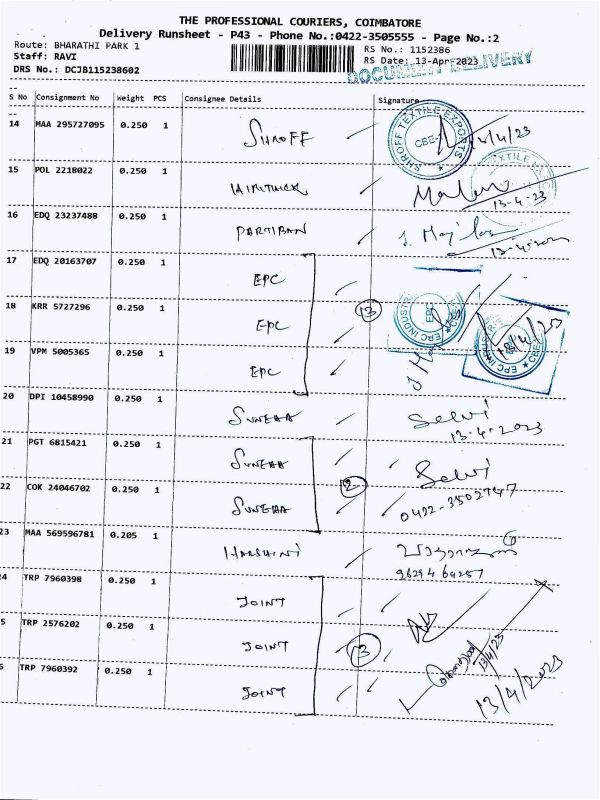 THE PROFESSIONAL COURIERS, COIMBATORE
Delivery Runsheet - P43 - Phone No.:0422-3505555 - Page No.:2
Route: BHARATHI PARK 1 RS No.: 1152386
Staff: RAVI RS Date: 13-Apr-2023
DRS No.: DCJB115238602 DOCUMENT DELIVERY
S No Consignment No Weight PCS Consignee Details Signature
14 MAA 295727095 0.250 1 SHROFF SHROFF TEXTILE EXPORTS CBE
15 POL 2218022 0.250 1 13-4-23
16 EDQ 23237488 0.250 1 PARTIBAN
17 EDQ 20163707 0.250 1 EPC
18 KRR 5727296 0.250 1 EPC 13 EPC INDUSTRI EPC CBE
19 VPM 5005365 0.250 1 EPC EPC INDUSTRI CBE
20 DPI 10458990 0.250 1 SUNEHA Selvi
13-4-2023
21 PGT 6815421 0.250 1 SUNEHA Selvi
22 COK 24046702 0.250 1 SUNEHA 2 0422-3502747
23 MAA 569596781 0.205 1 HARSHINI
4 TRP 7960398 0.250 1 JOINT
5 TRP 2576202 0.250 1 JOINT 3 13/4/23
TRP 7960392 0.250 1 JOINT 13/4/2023